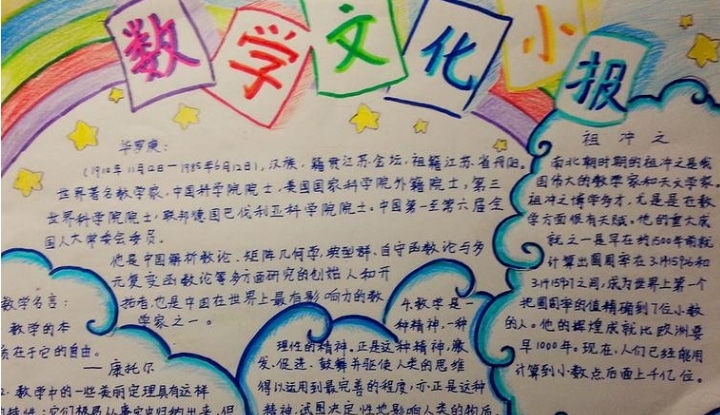 数学文化小报
华罗庚:
(1910年11月12日—1985年6月12日),汉族,籍贯江苏金坛,祖籍江苏省丹阳。
世界著名数学家,中国科学院院士,美国国家科学院外籍院士,第三
世界科学院院士,联邦德国巴伐利亚科学院院士。中国第一至第六届全
国人大常委会委员。
他是中国解析数论、矩阵几何学,典型群、自守函数论与多
元复变函数论等多方面研究的创始人和开
拓者,也是中国在世界上最有影响力的数
学家之一。
祖冲之
南北朝时期的祖冲之是我
国伟大的数学家和天文学家。
祖冲之博学多才,尤是是在数
学方面很有天赋。他的重大成
就之一是早在约1500年前就
计算出圆周率在3.1415926和
3.1415927之间,成为世界上第一个
把圆周率的值精确到了7位小数
的人。他的辉煌成就比欧洲要
早1000年。现在,人们已经能用
计算到小数点后面上千亿位。
数学名言:
数学的本
质在于它的自由。
——康托尔
2.数学中的一些美丽定理具有这样
4.数学是一
种精神,一种
理性的精神。正是这种精神,激
发、促进、鼓舞并驱使人类的思维
得以运用到最完善的程度,亦正是这种
精神,试图决定性地影响人类的物质、